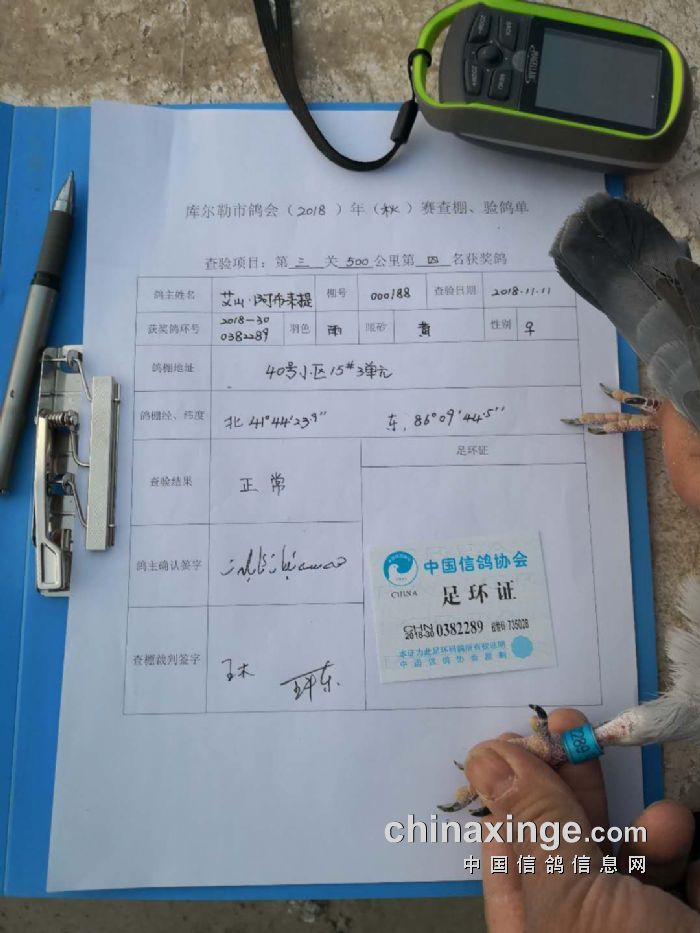 MAGELLAN
库尔勒市鸽会（2018）年（秋）赛查棚、验鸽单
查验项目：第 三 关 500 公里第 四 名获奖鸽
鸽主姓名 艾山·阿布来提 棚号 000188 查验日期 2018.11.11
获奖鸽环号 2018-30 0382289 羽色 雨 眼砂 黄 性别 ♀
鸽棚地址 40号小区15#3单元
鸽棚经、纬度 北 41°44'23.9'' 东, 86°09'44.5''
查验结果 正常 足环证
鸽主确认签字
查棚裁判签字
中国信鸽协会
CHINA 足环证
CHN 2018-30 0382289 密码 735028
本证为此足环鸽所有权证明
中国信鸽协会监制
289
chinaxinge.com
中国信鸽信息网